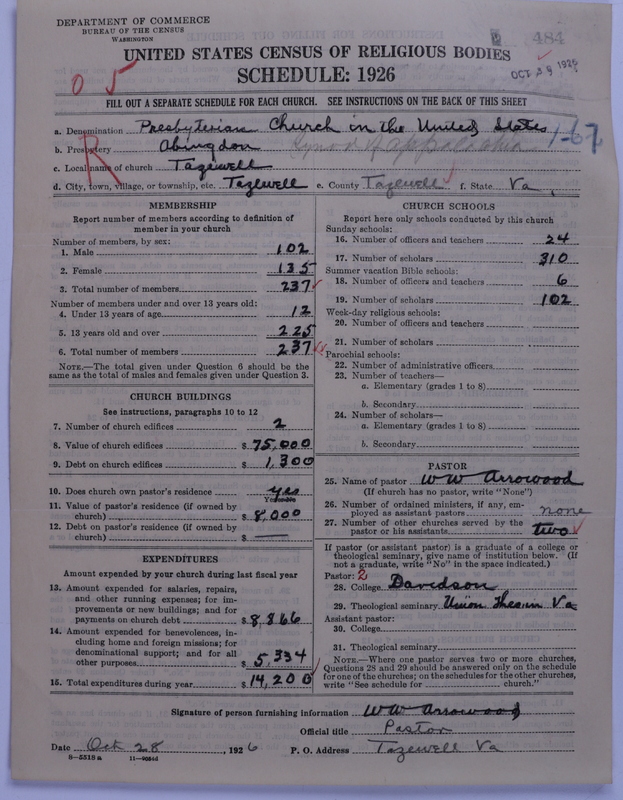 DEPARTMENT OF COMMERCE
BUREAU OF THE CENSUS
WASHINGTON
484
UNITED STATES CENSUS OF RELIGIOUS BODIES
SCHEDULE: 1926
OCT 29 1926
0 5
FILL OUT A SEPARATE SCHEDULE FOR EACH CHURCH. SEE INSTRUCTIONS ON THE BACK OF THIS SHEET
a. Denomination Presbyterian Church in the United States
1-67
b. Presbytery Abingdon Synod of Appalachia
R
c. Local name of church Tazewell
d. City, town, village, or township, etc. Tazewell e. County Tazewell f. State Va.
MEMBERSHIP
Report number of members according to definition of
member in your church
Number of members, by sex:
1. Male 102
2. Female 135
3. Total number of members 237
Number of members under and over 13 years old:
4. Under 13 years of age 12
5. 13 years old and over 225
6. Total number of members 237
NOTE.—The total given under Question 6 should be the
same as the total of males and females given under Question 3.
CHURCH BUILDINGS
See instructions, paragraphs 10 to 12
7. Number of church edifices 2
8. Value of church edifices $ 75,000
9. Debt on church edifices $ 1,300
10. Does church own pastor's residence yes
Yes or No
11. Value of pastor's residence (if owned by
church) $ 8,000
12. Debt on pastor's residence (if owned by
church) $ —
EXPENDITURES
Amount expended by your church during last fiscal year
13. Amount expended for salaries, repairs,
and other running expenses; for im-
provements or new buildings; and for
payments on church debt $ 8,866
14. Amount expended for benevolences, in-
cluding home and foreign missions; for
denominational support; and for all
other purposes $ 5,334
15. Total expenditures during year $ 14,200
CHURCH SCHOOLS
Report here only schools conducted by this church
Sunday schools:
16. Number of officers and teachers 24
17. Number of scholars 310
Summer vacation Bible schools:
18. Number of officers and teachers 6
19. Number of scholars 102
Week-day religious schools:
20. Number of officers and teachers
21. Number of scholars
Parochial schools:
22. Number of administrative officers
23. Number of teachers—
a. Elementary (grades 1 to 8)
b. Secondary
24. Number of scholars—
a. Elementary (grades 1 to 8)
b. Secondary
PASTOR
25. Name of pastor W W Arrowood
(If church has no pastor, write "None")
26. Number of ordained ministers, if any, em-
ployed as assistant pastors none
27. Number of other churches served by the
pastor or his assistants two
If pastor (or assistant pastor) is a graduate of a college or
theological seminary, give name of institution below. (If
not a graduate, write "No" in the space indicated.)
Pastor: 2
28. College Davidson
29. Theological seminary Union Va
Assistant pastor:
30. College
31. Theological seminary
NOTE.—Where one pastor serves two or more churches,
Questions 28 and 29 should be answered only on the schedule
for one of the churches; on the schedules for the other churches,
write "See schedule for church."
Signature of person furnishing information W W Arrowood
Official title Pastor
Date Oct 28, 1926 P. O. Address Tazewell Va
8-5518a 11-90840